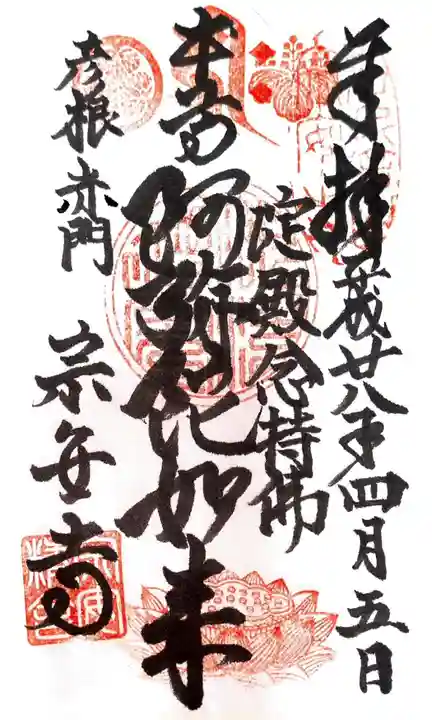 奉拝 平成廿八年四月五日
淀殿念持佛
本尊 阿弥陀如来
彦根赤門 宗安寺